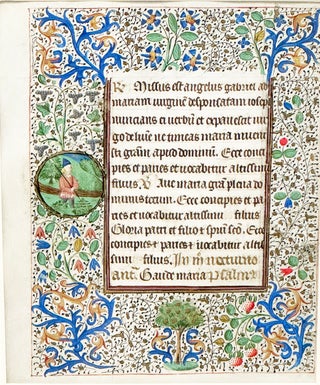 R Missus est angelus gabriel ad
mariam virginē desponsatam ioseph
nuncians ei verbū et expauescit uir
go de luīe ne timeas maria inuenis
ti grām apud dominum. Ecce conci
pies et paries et uocabitur altissimi
filius. V Aue maria grā plena do
minus tecum. Ecce concipies et pa
ries et uocabitur altissimi filius
Gloria patri et filio et spūi scō. Ecce
concipies et paries et uocabitur altis
simi filius. In nocturno
anē. Gaude maria Psalmꝰ